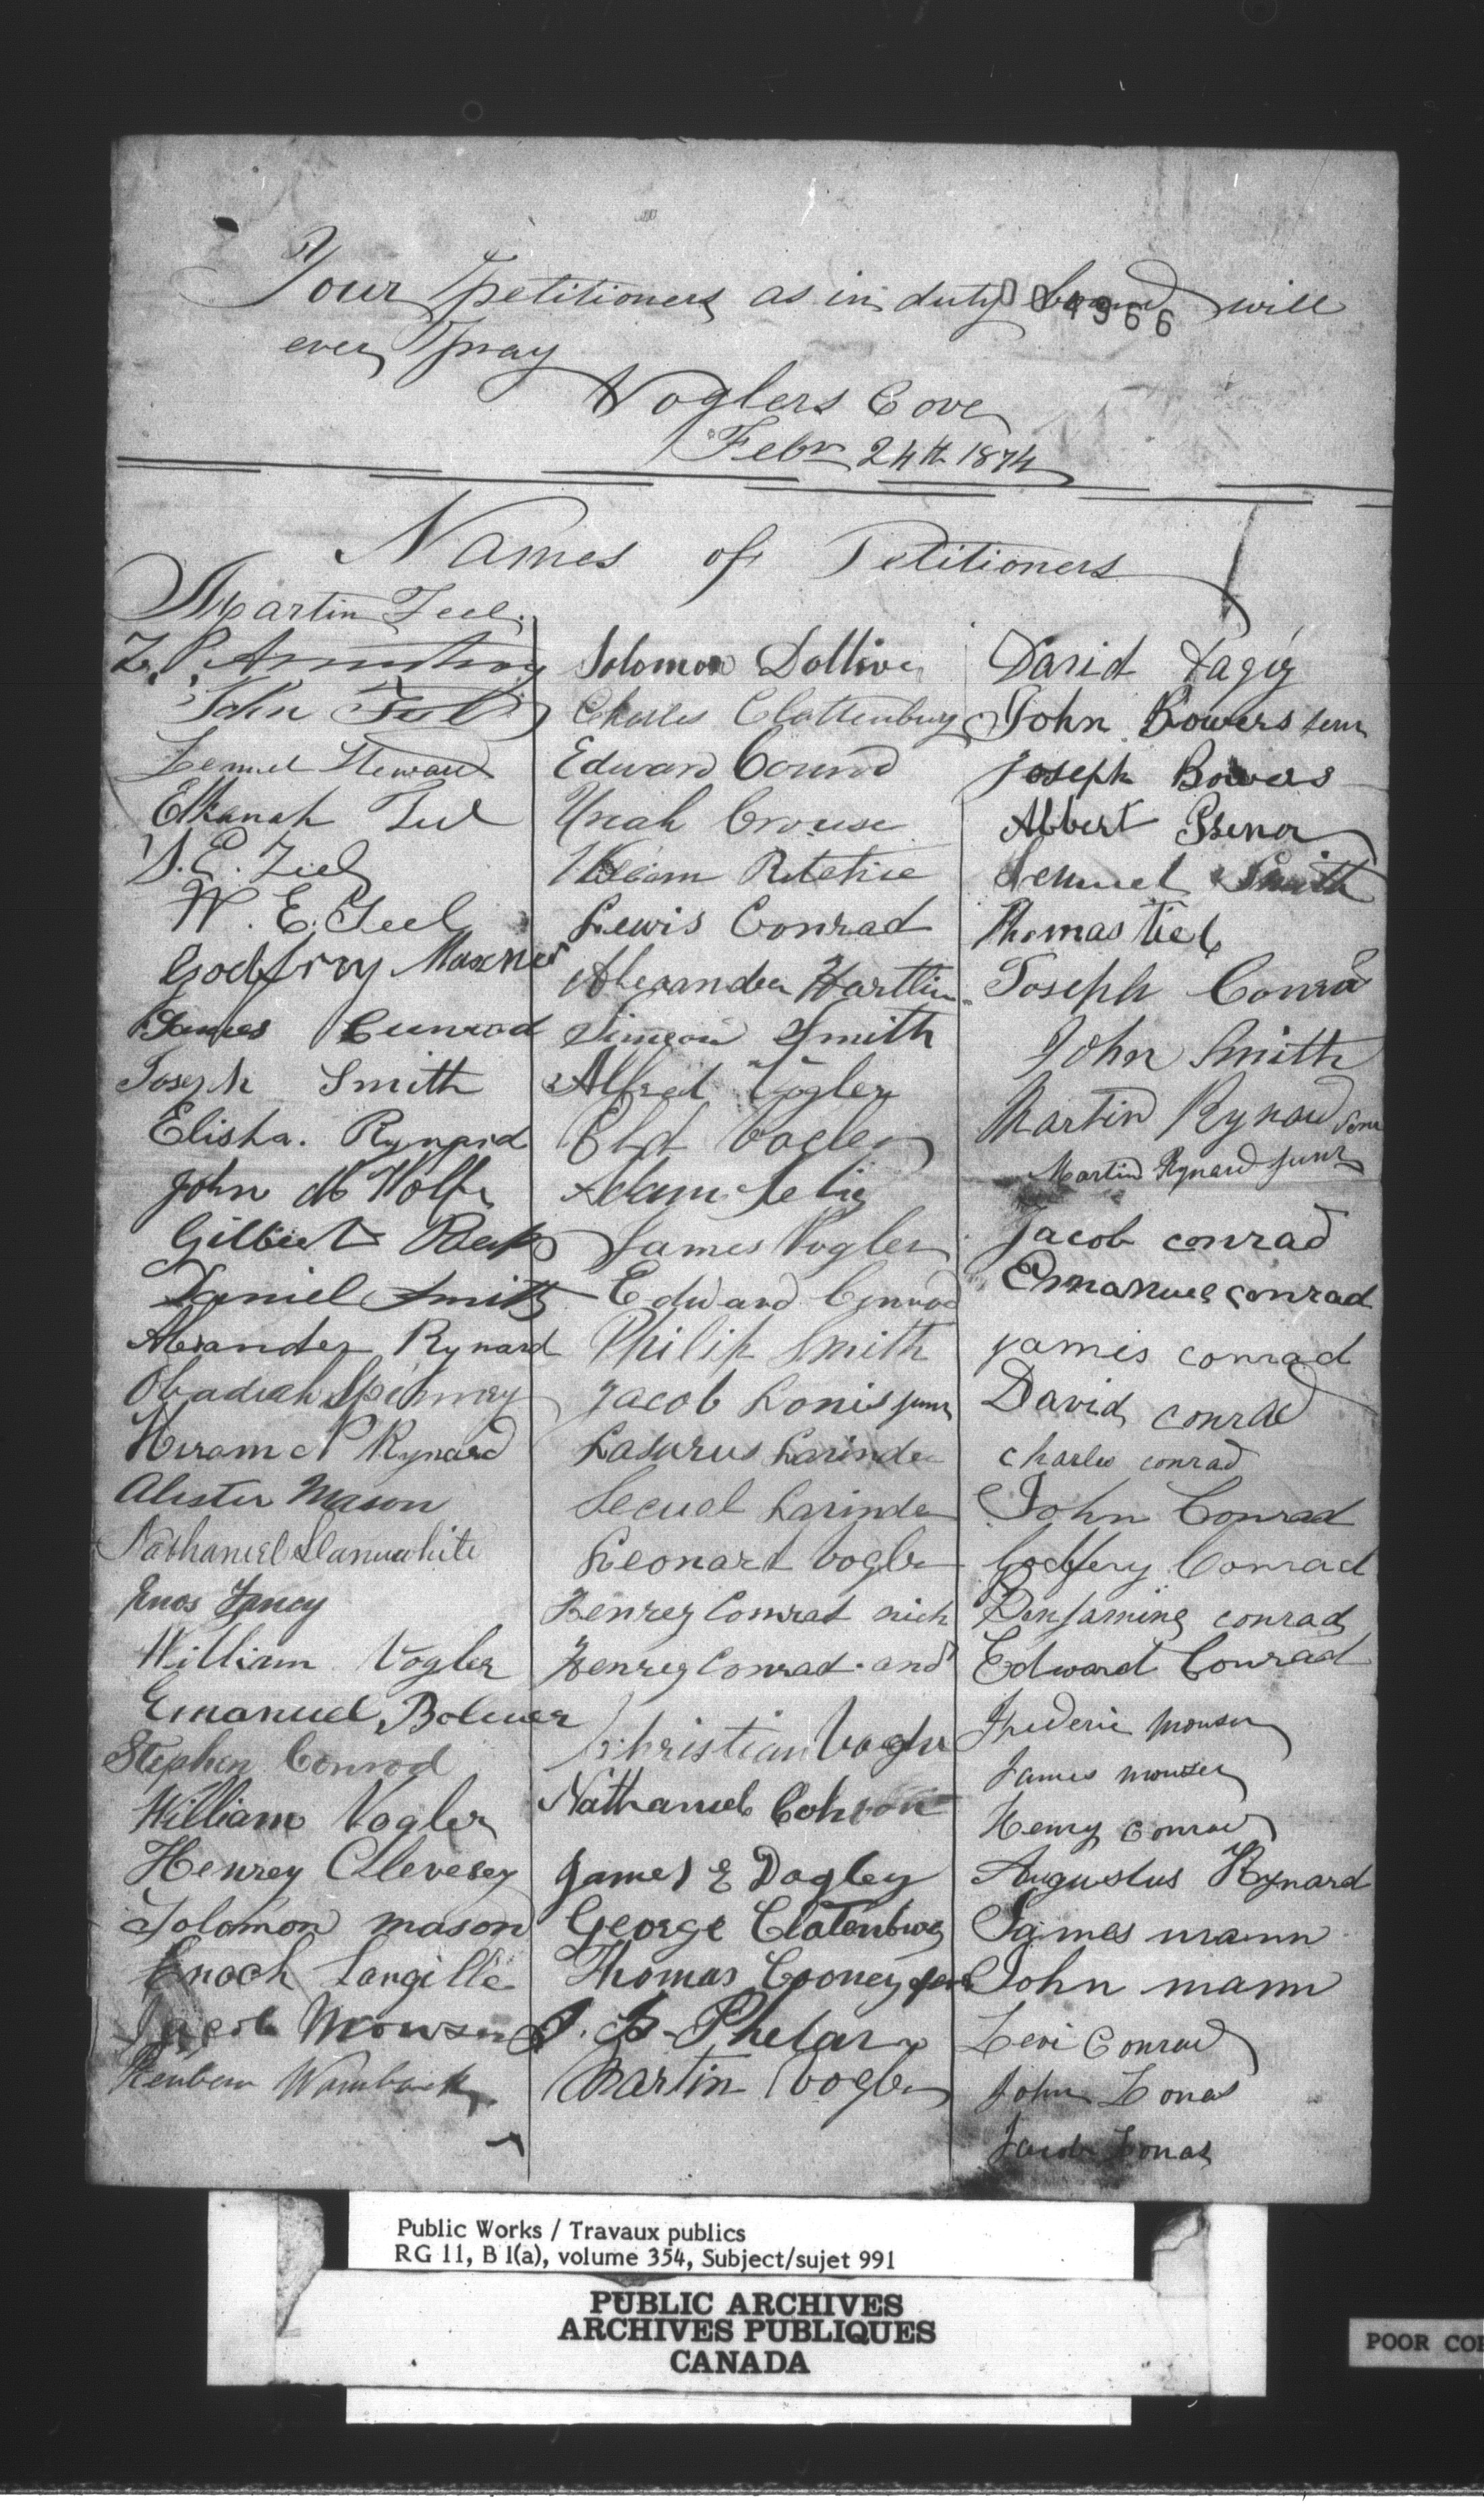 Your petitioners as in duty bound will
004966
ever pray
Voglers Cove
Febr 24th 1874
Names of Petitioners
Martin Teel
Z. P. Armstrong
John Teel
Lemuel Steward
Elkanah Teel
S. E. Teel
W. E. Teel
Godfrey Maxner
James Cunrod
Joseph Smith
Elisha. Rynard
John M Wolfe
Gilbert
Daniel Smith
Alexander Rynard
Obadiah Spinney
Hiram N Rynard
Alister Mason
Nathaniel
Enos
William Vogler
Emanuel Bolever
Stephen Conrod
William Vogler
Henrey Clevesey
Solomon Mason
Enoch Langille
Jacob Mouser
Reuben Wamback
Solomon Dolliver
Charles Clattenburg
Edward Counod
Uriah Crouse
William Ritchie
Lewis Conrad
Alexander Hartlin
Simeon Smith
Alfred Vogler
Vogler
Adam Selig
James Vogler
Edward Conrod
Philip Smith
Jacob Lonis junr
Lasurus Larinder
Lecuel Larinder
Leonard Vogler
Henrey Conrad nich
Henrey Conrad and
Christian Vogler
Nathaniel
James E Dagley
George Clatenburg
Thomas Cooney
J. B. Phelan
Martin Vogler
David
John Bowers senr
Joseph Bowers
Albert
Lemuel Smith
Thomas Tiel
Joseph Conrad
John Smith
Martin Rynard Senr
Martin Rynard junr
Jacob conrad
Emanuel conrad
James conrad
David conrad
Charles conrad
John Conrad
Godfery Conrad
Benjamine conrad
Edward Conrad
Frederic mouser
James mouser
Henry Conrad
Augustus Rynard
James mann
John mann
Levi Conrad
John Lonas
Jacob Lonas
Public Works / Travaux publics
RG 11, B 1(a), volume 354, Subject/sujet 991
PUBLIC ARCHIVES
ARCHIVES PUBLIQUES
CANADA
POOR CO